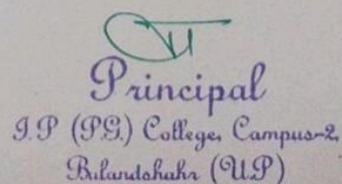 Principal
I.P (P.G.) College, Campus-2,
Bulandshahr (U.P)